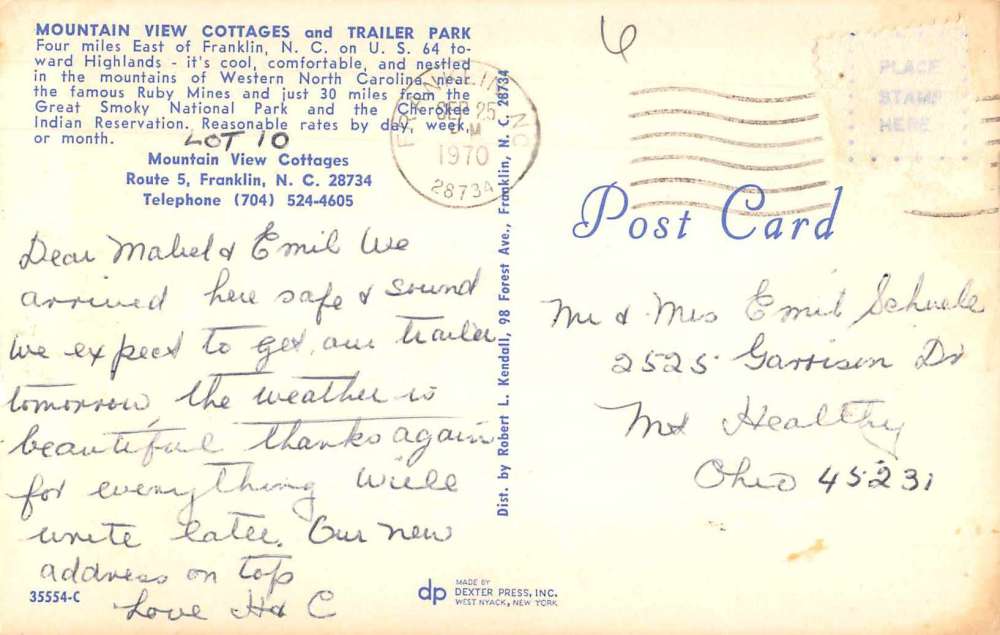 MOUNTAIN VIEW COTTAGES and TRAILER PARK
Four miles East of Franklin, N. C. on U. S. 64 to-
ward Highlands - it's cool, comfortable, and nestled
in the mountains of Western North Carolina, near
the famous Ruby Mines and just 30 miles from the
Great Smoky National Park and the Cherokee
Indian Reservation. Reasonable rates by day, week,
or month.
LOT 10
Mountain View Cottages
Route 5, Franklin, N. C. 28734
Telephone (704) 524-4605
Dear Mabel & Emil We
arrived here safe & sound
We expect to get our trailer
tomorrow, the weather is
beautiful thanks again
for everything Will
write later. Our new
address on top
Love H & C
35554-C
FRANKLIN
SEP 25
PM
1970
28734
NC
Dist. by Robert L. Kendall, 98 Forest Ave., Franklin, N. C. 28734
dp
MADE BY
DEXTER PRESS, INC.
WEST NYACK, NEW YORK
6
PLACE
STAMP
HERE
Post Card
Mr & Mrs Emil Schuele
2525 Garrison Dr
Mt Healthy
Ohio 45231